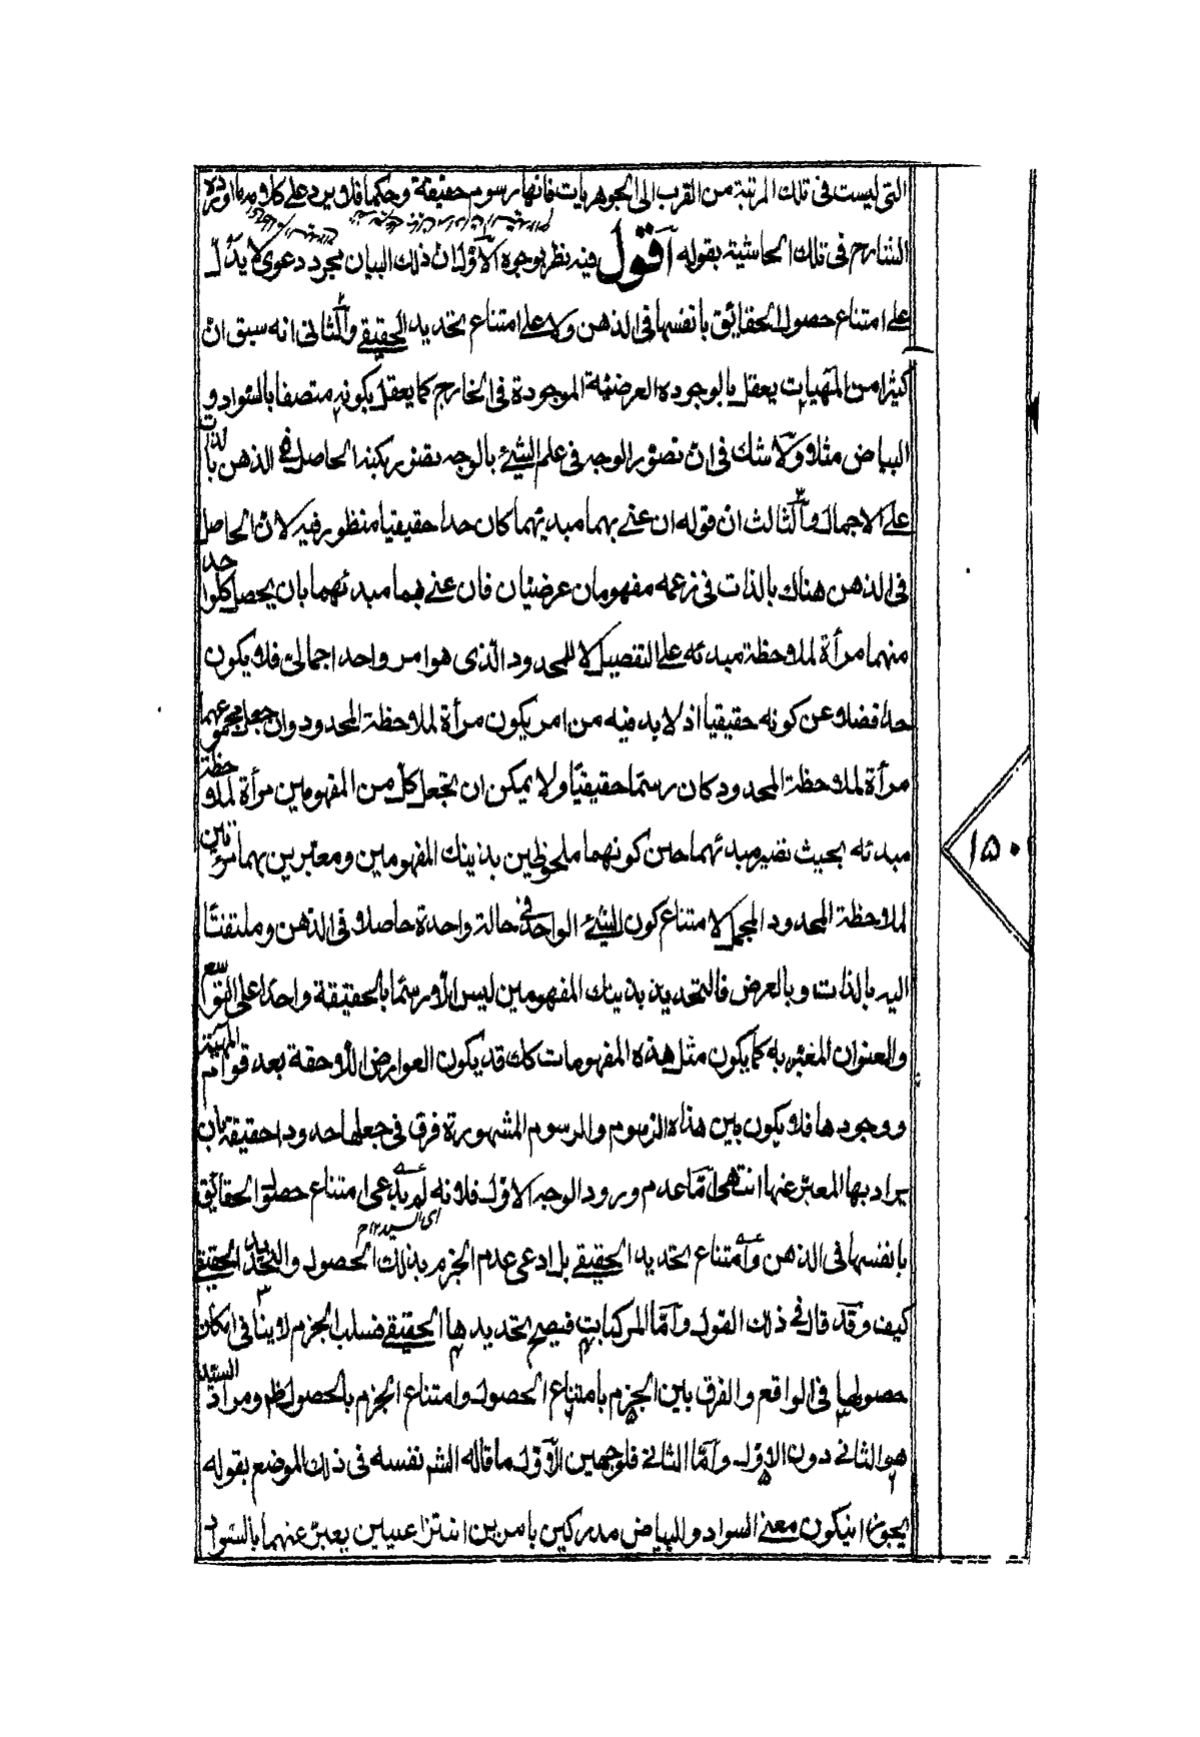 التى ليست فى تلك المرتبة من القرب الى الجوهريات فانها رسوم حقيقة وحكما فلا يرد على كلامه ما اورده
الشارح فى تلك الحاشية بقوله اقول فيه نظر بوجوه الاول ان ذلك البيان مجرد دعوى لا يدل
على امتناع حصول الحقائق بانفسها فى الذهن ولا على امتناع تحديد الحقيقي والثانى انه سبق ان
كثيرا من المهيات يعقل بالوجوه العرضية الموجودة فى الخارج كما يعقل بكونه متصفا بالسواد و
البياض مثلا ولا شك فى ان تصور الوجه فى علم الشئ بالوجه تصور بكنهه الحاصل فى الذهن بالذات
على الاجمال والثالث ان قوله ان عنى بهما مبدئيهما كان حدا حقيقيا منظور فيه لان الحاصل
فى الذهن هناك بالذات فى زعمه مفهومان عرضيان فان عنى بهما مبدئهما بان يحصل كل واحد
منهما مرأة لملاحظة مبدئه على التفصيل لا للمحدود الذى هو امر واحد اجمالى فلا يكون
حدا فضلا عن كونه حقيقيا اذ لا بد فيه من امر يكون مرأة لملاحظة المحدود وان جعل مجموعهما
مرأة لملاحظة المحدود كان رسما حقيقيا ولا يمكن ان تجعل كل من المفهومين مرأة لملاحظة
مبدئه بحيث تصير مبدئهما حين كونهما ملحوظين بذينك المفهومين ومعتبرين بهما مرأتين
لملاحظة المحدود المجمل لامتناع كون الشئ الواحد فى حالة واحدة حاصلا فى الذهن وملتفتا
اليه بالذات وبالعرض فالتحديد بذينك المفهومين ليس الا رسما بالحقيقة واحدا على التوسع
والعنوان المعبر به كما يكون مثل هذه المفهومات كك قد يكون العوارض اللاحقة بعد قوام المهية
ووجودها فلا يكون بين هذه الرسوم والرسوم المشهورة فرق فى جعلها حدودا حقيقة بان
يراد بها المعبر عنها انتهى اما عدم ورود الوجه الاول فلانه لم يدعى امتناع حصول الحقائق
اى السيد ١٢ م
بانفسها فى الذهن وامتناع تحديد الحقيقي بل ادعى عدم الجزم بذلك الحصول والتحديد الحقيقي
كيف وقد قال فى ذلك القول واما المركبات فيصح تحديدها الحقيقي فسلب الجزم لا ينافى امكان
حصولها فى الواقع والفرق بين الجزم بامتناع الحصول وامتناع الجزم بالحصول ظم ومراد السيد
هو الثانى دون الاول واما الثانى فلوجهين الاول ما قاله الشم نفسه فى ذلك الموضع بقوله
يجوز ان يكون معنى السواد والبياض مدركين بامرين انتزاعيين يعبر عنهما بالسواد
١٥٠